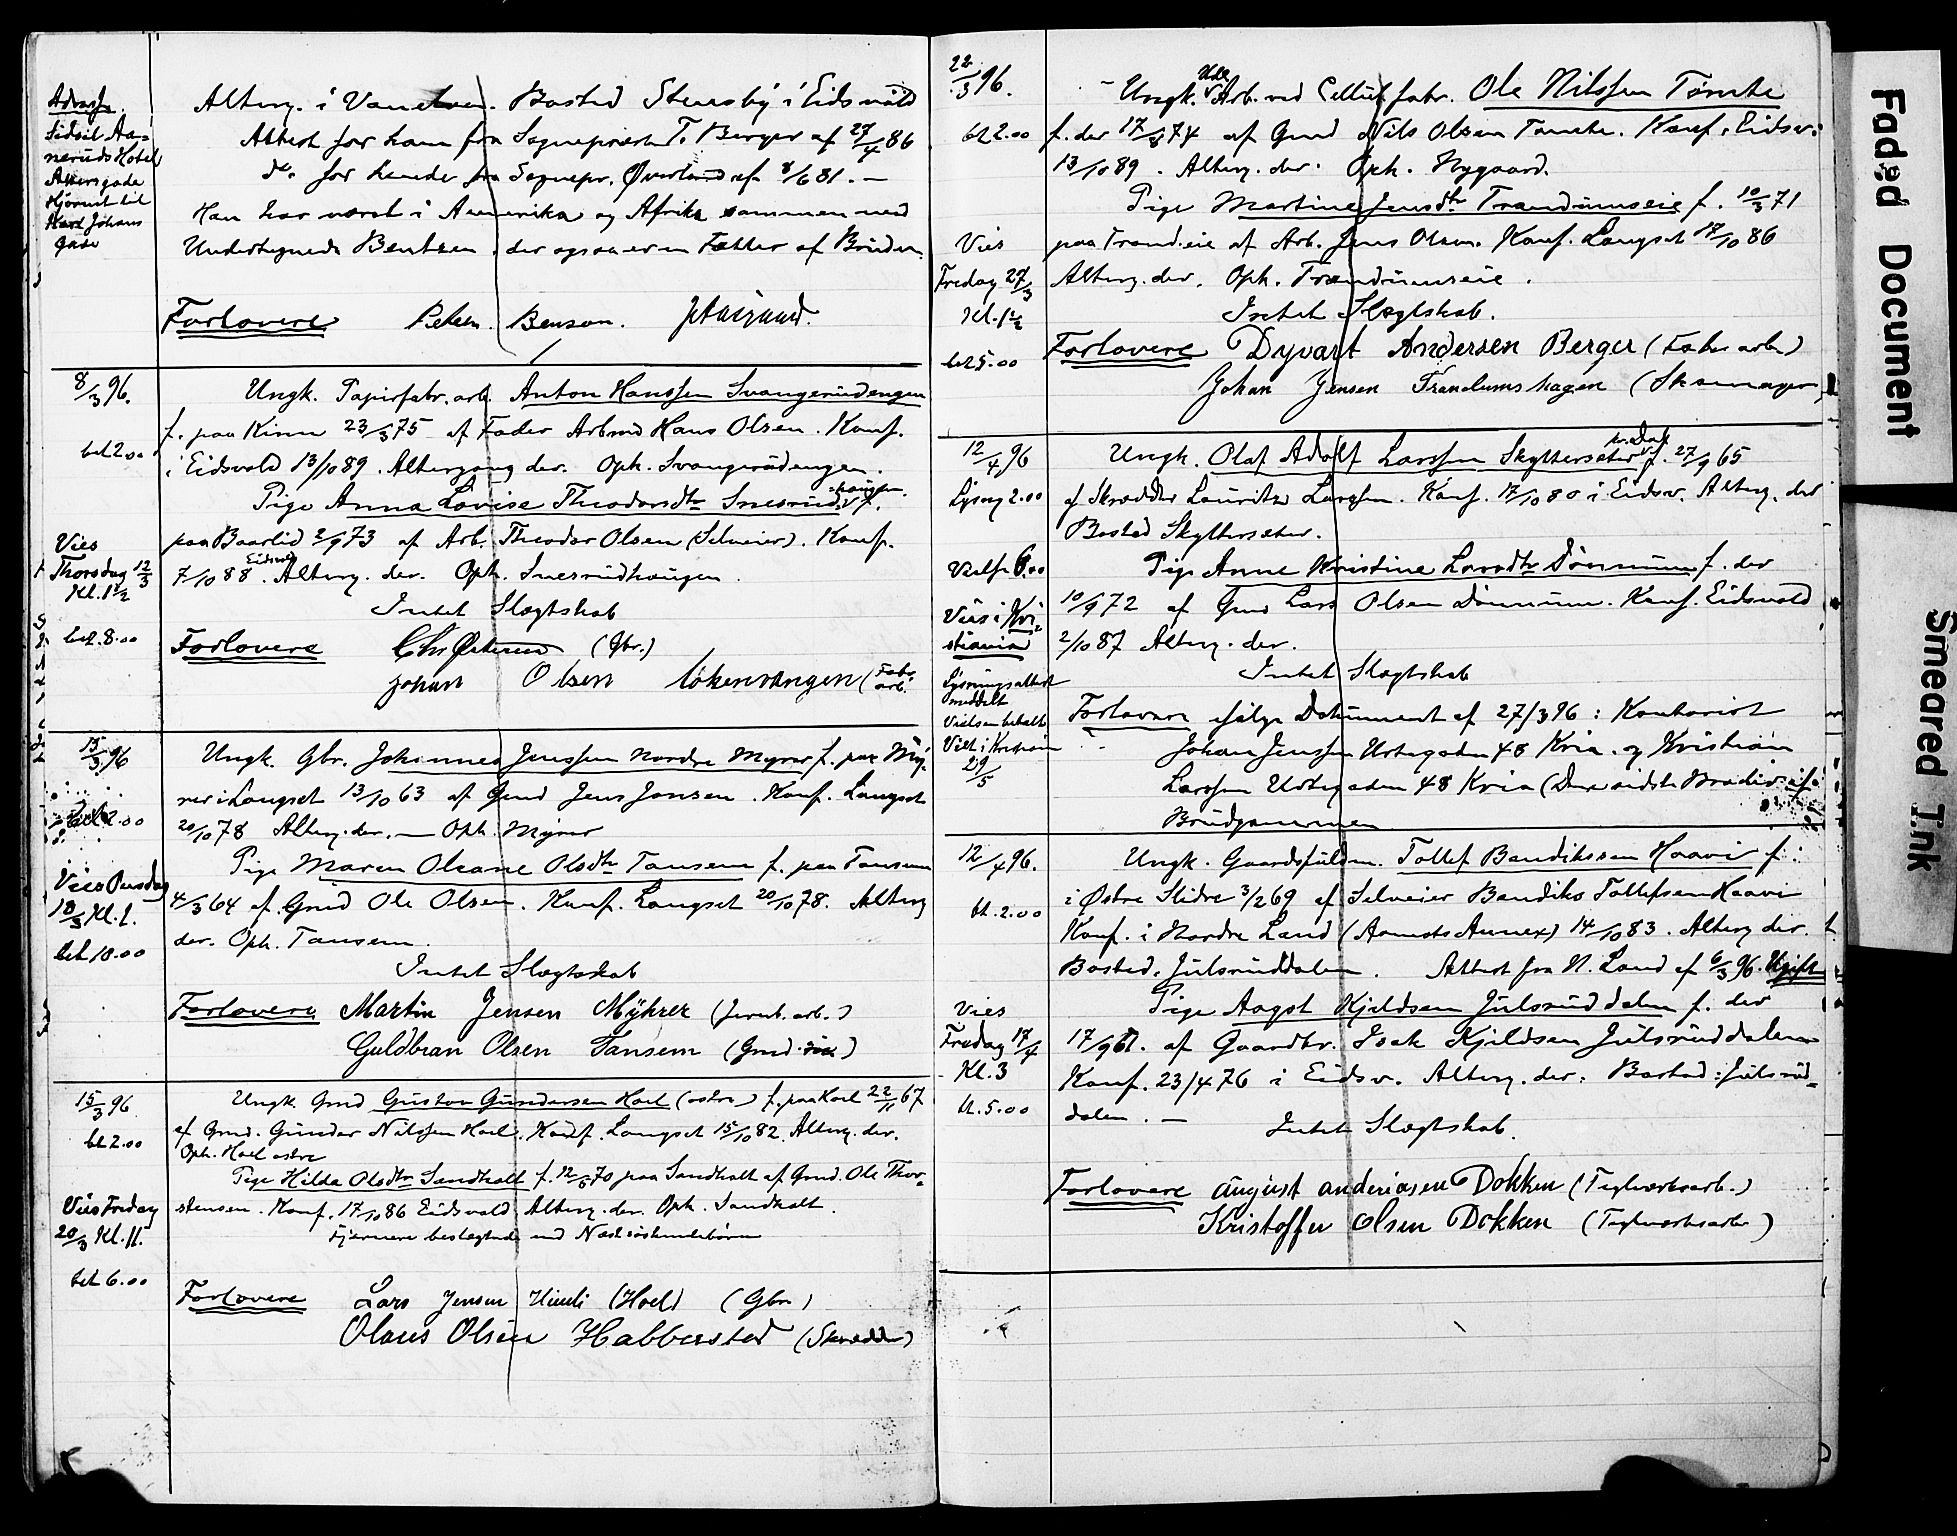 Adresse.
Hotel
Akersgade
Hjørnet til
Karl Johans
gade
Alterg. i Bosted Stensby i Eidsvold
Attest for ham fra Sogneprest T. Berger af 27/4 86
do for hende fra Sognepr. Øverland af 8/6 81. —
Han har været i Amerika og Afrika sammen med
Undertegnede Bentzen, der ogsaa er en Fætter af Bruden.
Forlovere Benson.
8/3 96.
bet 2.00
Vies
Thorsdag 12/3
Kl. 1 1/2
bet. 8.00
Ungk. Papirfabr. arb. Anton Hanssen Svangerudengen
f. paa 23/3 75 af Fader Arbmd Hans Olsen. Konf.
i Eidsvold 13/10 89. Altergang der. Oph. Svangerudengen.
Pige Anna Lovise Theodorsdtr Snesrud- haugen. f.
paa Baarlid 2/9 73 af Arb. Theodor Olsen (Selveier). Konf.
7/10 88. Eidsvold Alterg. der. Oph. Snesrudhaugen.
Intet Slægtskab
Forlovere (Gbr.)
Johan Olsen Løkenvangen (Fabr. arb.
15/3 96
bet 2.00
Vies Onsdag
18/3 Kl. 1.
bet 10.00
Ungk. Gbr. Johannes Jenssen Nordre Myrer f. paa My-
rer i Langset 13/10 63 af Gmd Jens Jansen. Konf. Langset
20/10 78 Alterg. der. — Oph. Myrer
Pige Maren Oleane Olsdtr Tansem f. paa Tansem
4/3 64 af Gmd Ole Olsen. Konf. Langset 20/10 78. Alterg
der. Oph. Tansem.
Intet Slægtskab
Forlovere Martin Jensen Myhrer (Jernb. arb.)
Guldbran Olsen Tansem (Gmd.)
15/3 96.
bet 2.00
Vies Fredag
20/3 Kl. 11.
bet 6.00
Ungk. Gmd Gustav Gundersen Hoel (østre) f. paa Hoel 22/11 67
af Gmd. Gunder Nilssen Hoel. Konf. Langset 15/10 82. Alterg. der.
Oph. Hoel østre
Pige Hilda Olsdtr Sandholt f. 12/5 70 paa Sandholt af Gmd. Ole Thor-
stensen. Konf. 17/10 86 Eidsvold. Alterg. der. Oph. Sandholt.
Fjernere beslægtede end Næstsøskendebørn
Forlovere Lars Jensen (Hoel) (Gbr.)
Olaus Olsen Habberstad (Skrædder)
22/3 96.
bet 2.00
Vies
Fredag 27/3
Kl. 1 1/2
bet 5.00
Ungk. Arb. ved Cellul. fabr. Ole Nilssen Tømte
f. der 17/3 74 af Gmd Nils Olsen Tømte. Konf. i Eidsv.
13/10 89. Alterg. der. Oph. Nygaard.
Pige Martine Jensdtr Trandumseie f. 10/3 71
paa Trand.eie af Arb. Jens Olsen. Konf. Langset 17/10 86
Alterg. der. Oph. Trandumseie.
Intet Slægtskab.
Forlovere Dyvart Andersen Berger (Fabr arb)
Johan Jensen Trandumshagen (Skomager)
12/4 96
Lysng 2.00
Vielse 6.00
Vies i Kri-
stiania
Lysningsattest
meddelt
Vielsen betalt
Viet i Kristiania
29/5
Ungk. Olaf Adolf Larssen Skytterseter f. 27/9 65
af Skrædder Lauritz Larssen. Konf. 17/10 80 i Eidsv. Alterg. der
Bosted Skytterseter.
Pige Anne Kristine Larsdtr Dønnum f. der
10/9 72 af Gmd Lars Olsen Dønnum. Konf. Eidsvold
2/10 87 Alterg. der.
Intet Slægtskab
Forlovere ifølge Dokument af 27/3 96: Kontorist
Johan Jenssen Urtegaden 48 Kria. og Kristian
Larssen Urtegaden 48 Kria (Den sidste Broder af
Brudgommen
12/4 96.
bt. 2.00
Vies
Fredag 17/4
Kl. 3
bt. 5.00
Ungk. Gaardsfuldm. Tollef Bendikssen Haavi f.
i Østre Slidre 3/2 69 af Selveier Bendiks Tollefsen Haavi
Konf. i Nordre Land (Aamots Annex) 14/10 83. Alterg der.
Bosted. Julsruddalen. Attest fra N. Land af 6/3 96. Ugift
Pige Aagot Kjeldsen Julsruddalen f. der
17/9 61. af Gaardbr. Isak Kjeldsen Julsruddalen
Konf. 23/4 76 i Eidsv. Alterg. der. Bosted: Julsrud-
dalen. —
Intet Slægtskab.
Forlovere August anderiasen Dokken (Teglverksarb.)
Kristoffer Olsen Dokken (Teglverksarb)
Faded Document
Smeared Ink